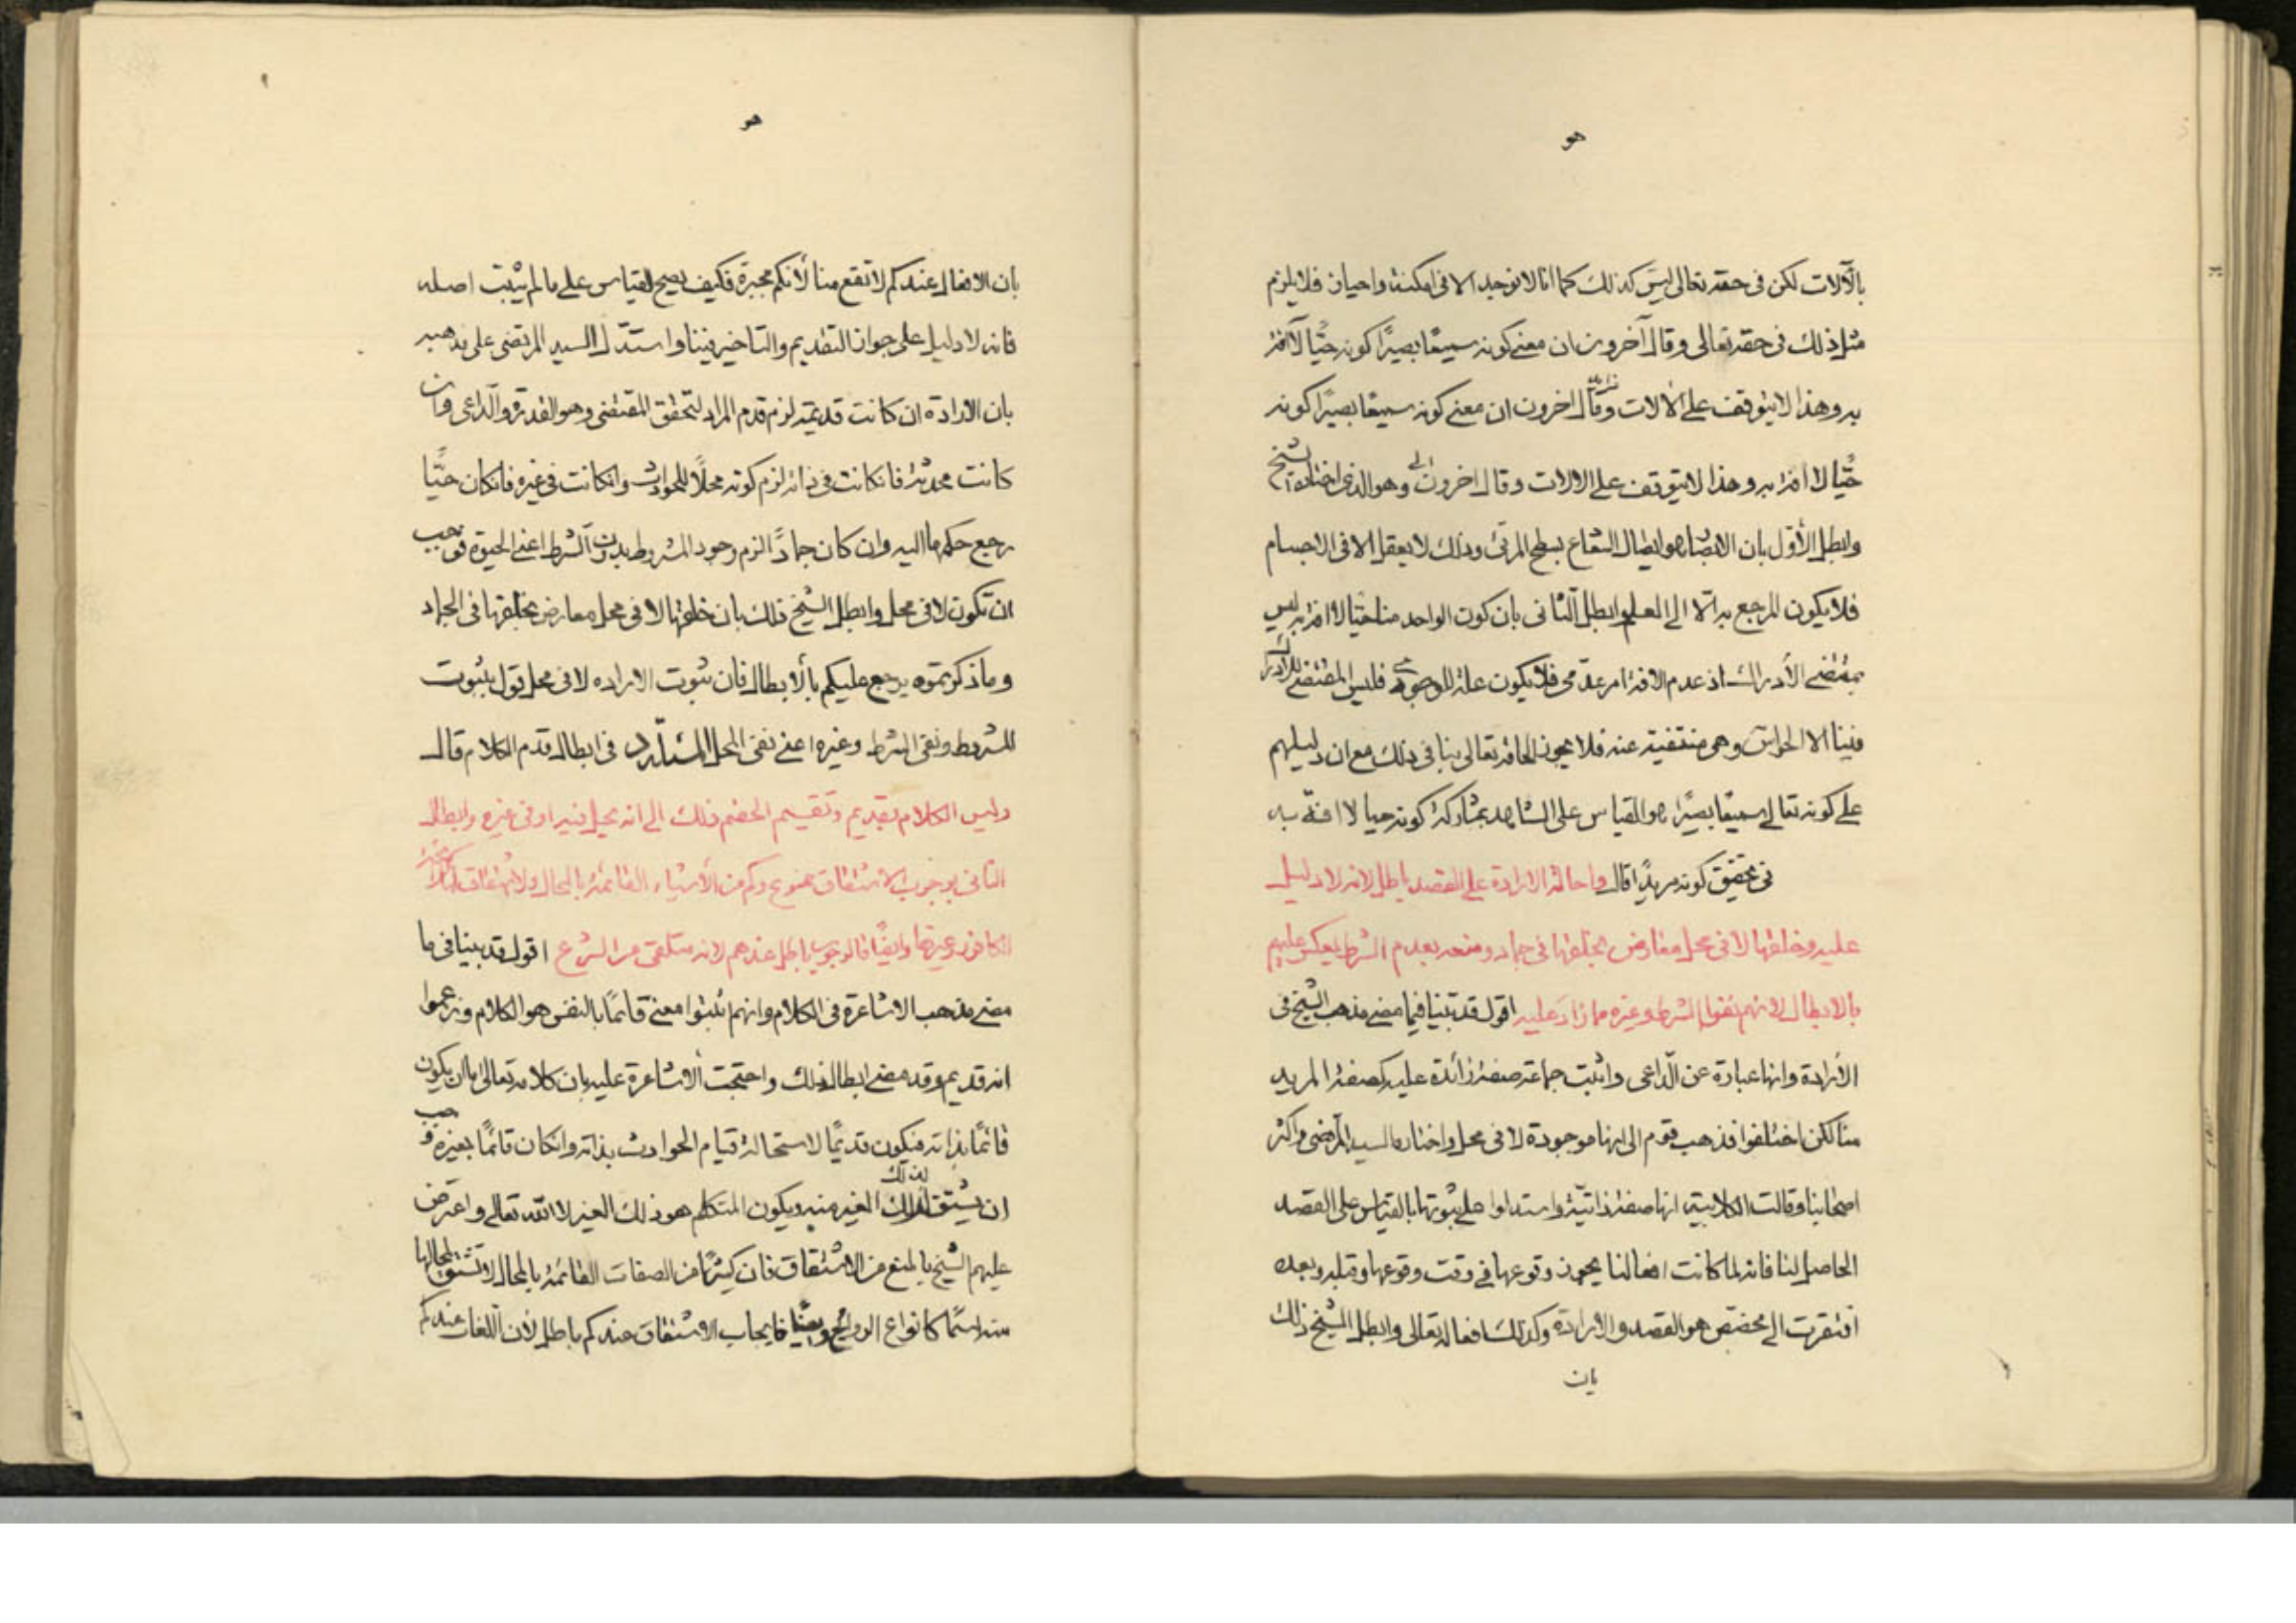 هو
بالآلات لكن فى حقه تعالى ليس كذلك كما انا لا نوجد الا فى امكنة واحيان فلا يلزم
مثل ذلك فى حقه تعالى وقال آخرون ان معنى كونه سميعًا بصيرًا كونه حيًّا لا آفة
به وهذا لا يتوقف على الالات وقال اخرون ان معنى كونه سميعًا بصيرًا كونه
حيًّا لا افة به وهذا لا يتوقف على الالات وقال اخرون وهو الذى اختاره الشيخ
وابطل الأوّل بان الابصار هو اتصال الشعاع بسطح المرئى وذلك لا يعقل الا فى الاجسام
فلا يكون المرجع به الّا الى العلم وابطل الثانى بان كون الواحد منا حيا لا افة به ليس
بمقتضى الأدراك اذ عدم الافة امر عدمى فلا يكون علة للوجودى فليس المقتضى للادراك
فينا الا الحواس وهى منتفية عنه فلا يجوز الحاقه تعالى بنا فى ذلك مع ان دليلهم
على كونه تعالى سميعًا بصيرًا هو القياس على الشاهد بمشاركة كونه حيا لا افة به
فى تحقيق كونه مريدًا قال واحالة الارادة على القصد باطل لانه لا دليل
عليه وخلقها لا فى محل معارض بخلقها فى جماد ومنعه بعدم الشرط ينعكس عليهم
بالابطال لانهم نفوا الشرط وغيره ما زاد عليه اقول قد بينا فيما مضى مذهب الشيخ فى
الأرادة وانها عبارة عن الداعى واثبت جماعة صفة زائدة عليه كصفة المريد
منا لكن اختلفوا فذهب قوم الى انها موجودة لا فى محل واختاره السيد المرتضى واكثر
اصحابنا وقالت الكلابية انها صفة ذاتية واستدلوا على ثبوتها بالقياس على القصد
الحاصل لنا فانه لما كانت افعالنا يجوز وقوعها فى وقت وقوعها وقبله وبعده
افتقرت الى مخصص هو القصد والارادة وكذلك افعاله تعالى وابطل الشيخ ذلك
بان
هو
بان الافعال عندكم لا تقع منا لأنكم مجبرة فكيف يصح القياس على ما لم يثبت اصله
فانه لا دليل على جواز التقديم والتاخير فينا واستدل السيد المرتضى على مذهبه
بان الارادة ان كانت قديمة لزم قدم المراد لتحقق المقتضى وهو القدرة والداعى وان
كانت محدثة فان كانت فى ذاته لزم كونه محلًا للحوادث وان كانت فى غيره فان كان حيًّا
رجع حكمها اليه وان كان جمادًا لزم وجود المشروط بدون الشرط اعنى الحيوة فوجب
ان تكون لا فى محل وابطل الشيخ ذلك بان خلقها لا فى محل معارض بخلقها فى الجماد
وما ذكرتموه يرجع عليكم بالأبطال فان ثبوت الاراده لا فى محل قول بثبوت
المشروط ونفى الشرط وغيره اعنى نفى المحل فى ابطال قدم الكلام قال
وليس الكلام بقديم وتقسيم الخصم ذلك الى انه يحل فيه او فى غيره وابطال
الثانى بوجوب الاشتقاق ممنوع وكم من الأشياء القائمة بالمحال ولا اشتقاق كرائحة
الكافور وغيرها وايضًا فالوجوب باطل عندهم لانه متلقى من الشرع اقول قد بينا فى ما
مضى مذهب الاشاعرة فى الكلام وانهم اثبتوا معنى قائمًا بالنفس هو الكلام وزعموا
انه قديم وقد مضى ابطال ذلك واحتجت الأشاعرة عليه بان كلامه تعالى اما ان يكون
قائمًا بذاته فيكون قديمًا لاستحالة قيام الحوادث بذاته وان كان قائمًا بغيره وجب
ان يشتق لذلك الغير منه ويكون المتكلم هو ذلك الغير لا الله تعالى واعترض
عليهم الشيخ بالمنع من الاشتقاق فان كثيرًا من الصفات القائمة بالمحال لا تشتق لمحالها
منه اسمًا كانواع الروائح وايضًا فايجاب الاشتقاق عندكم باطل لأن اللغات عندكم